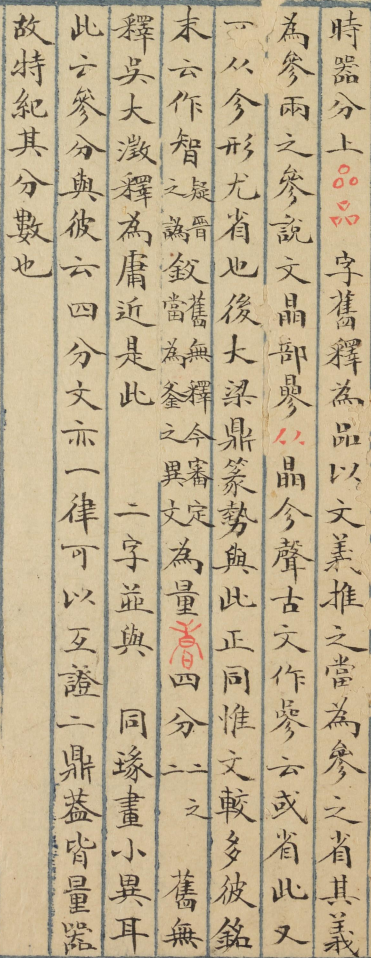 時器分上品品字舊釋為品以文義推之當為參之省其義
為參兩之參說文晶部曑从晶㐱聲古文作曑云或省此又
一从今形尤省也後大梁鼎篆勢與此正同惟文較多彼銘
末云作智疑晉之譌釹舊無釋今審定當為釜之異文為量四分二之舊無
釋吳大澂釋為庸近是此二字並與同瑑畫小異耳
此云參分與彼云四分文亦一律可以互證二鼎葢皆量器
故特紀其分數也